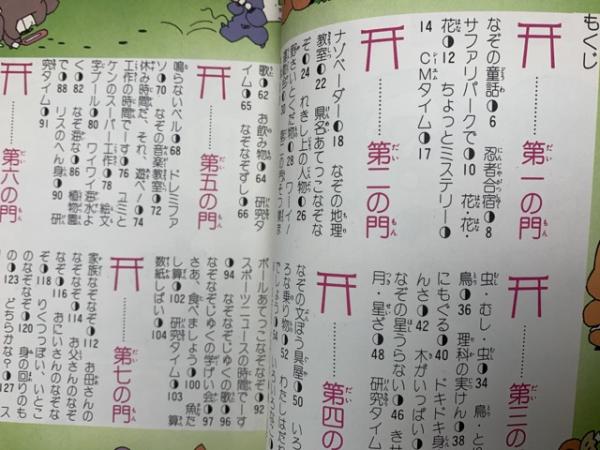 もくじ
第一の門
なぞの童話◗6 忍者合宿◗8
サファリパークで◗10 花・花・
花◗12 ちょっとミステリー◗
14 C・Mタイム◗17
第二の門
ナゾベーダー◗18 なぞの地理
教室◗22 県名あてっこなぞな
ぞ◗24 れきし上の人物◗26
第三の
虫・むし・虫◗34 鳥・と
鳥◗36 理科の実けん◗38
にもぐる◗40 ドキドキ身
んさ◗42 木がいっぱい◗
なぞの星うらない◗46 きせ
月・星ざ◗48 研究タイム
第四の
なぞの文ぼう具屋◗50 いろ
ろな乗り物◗52 わたしはだれ
歌◗62 お飲み物◗64 研究タ
イム◗65 なぞなぞずし◗66
第五の門
鳴らないベル◗68 ドレミファ
ソ◗70 なぞの音楽教室◗72
休み時間だ、それ、遊べ!◗74
工作の時間でーす◗76 ユミと
ケンのスーパー工作◗78 絵文
字プール◗80 ワイワイ海水よ
く◗82 なぞ海な◗86 植物園
で◗88 リスのへん身◗90 研
究タイム◗91
第六の門
ボールあてっこなぞなぞ◗92
スポーツニュースの時間でーす
◗94 なぞなぞじゅくの歌◗96
なぞなぞじゅくの学げい会◗97
さあ、食べましょう◗100 魚だ
し算◗102 研究タイム◗103 算
数紙しばい◗104
第七の門
家族なぞなぞ◗112 お母さんの
なぞ◗114 お父さんのなぞな
ぞ◗116 おにいさんのなぞな
ぞ◗118 りくつっぽい、いとこ
のなぞなぞ◗120 身の回りのも
の◗123 どちらかな?◗127 ス